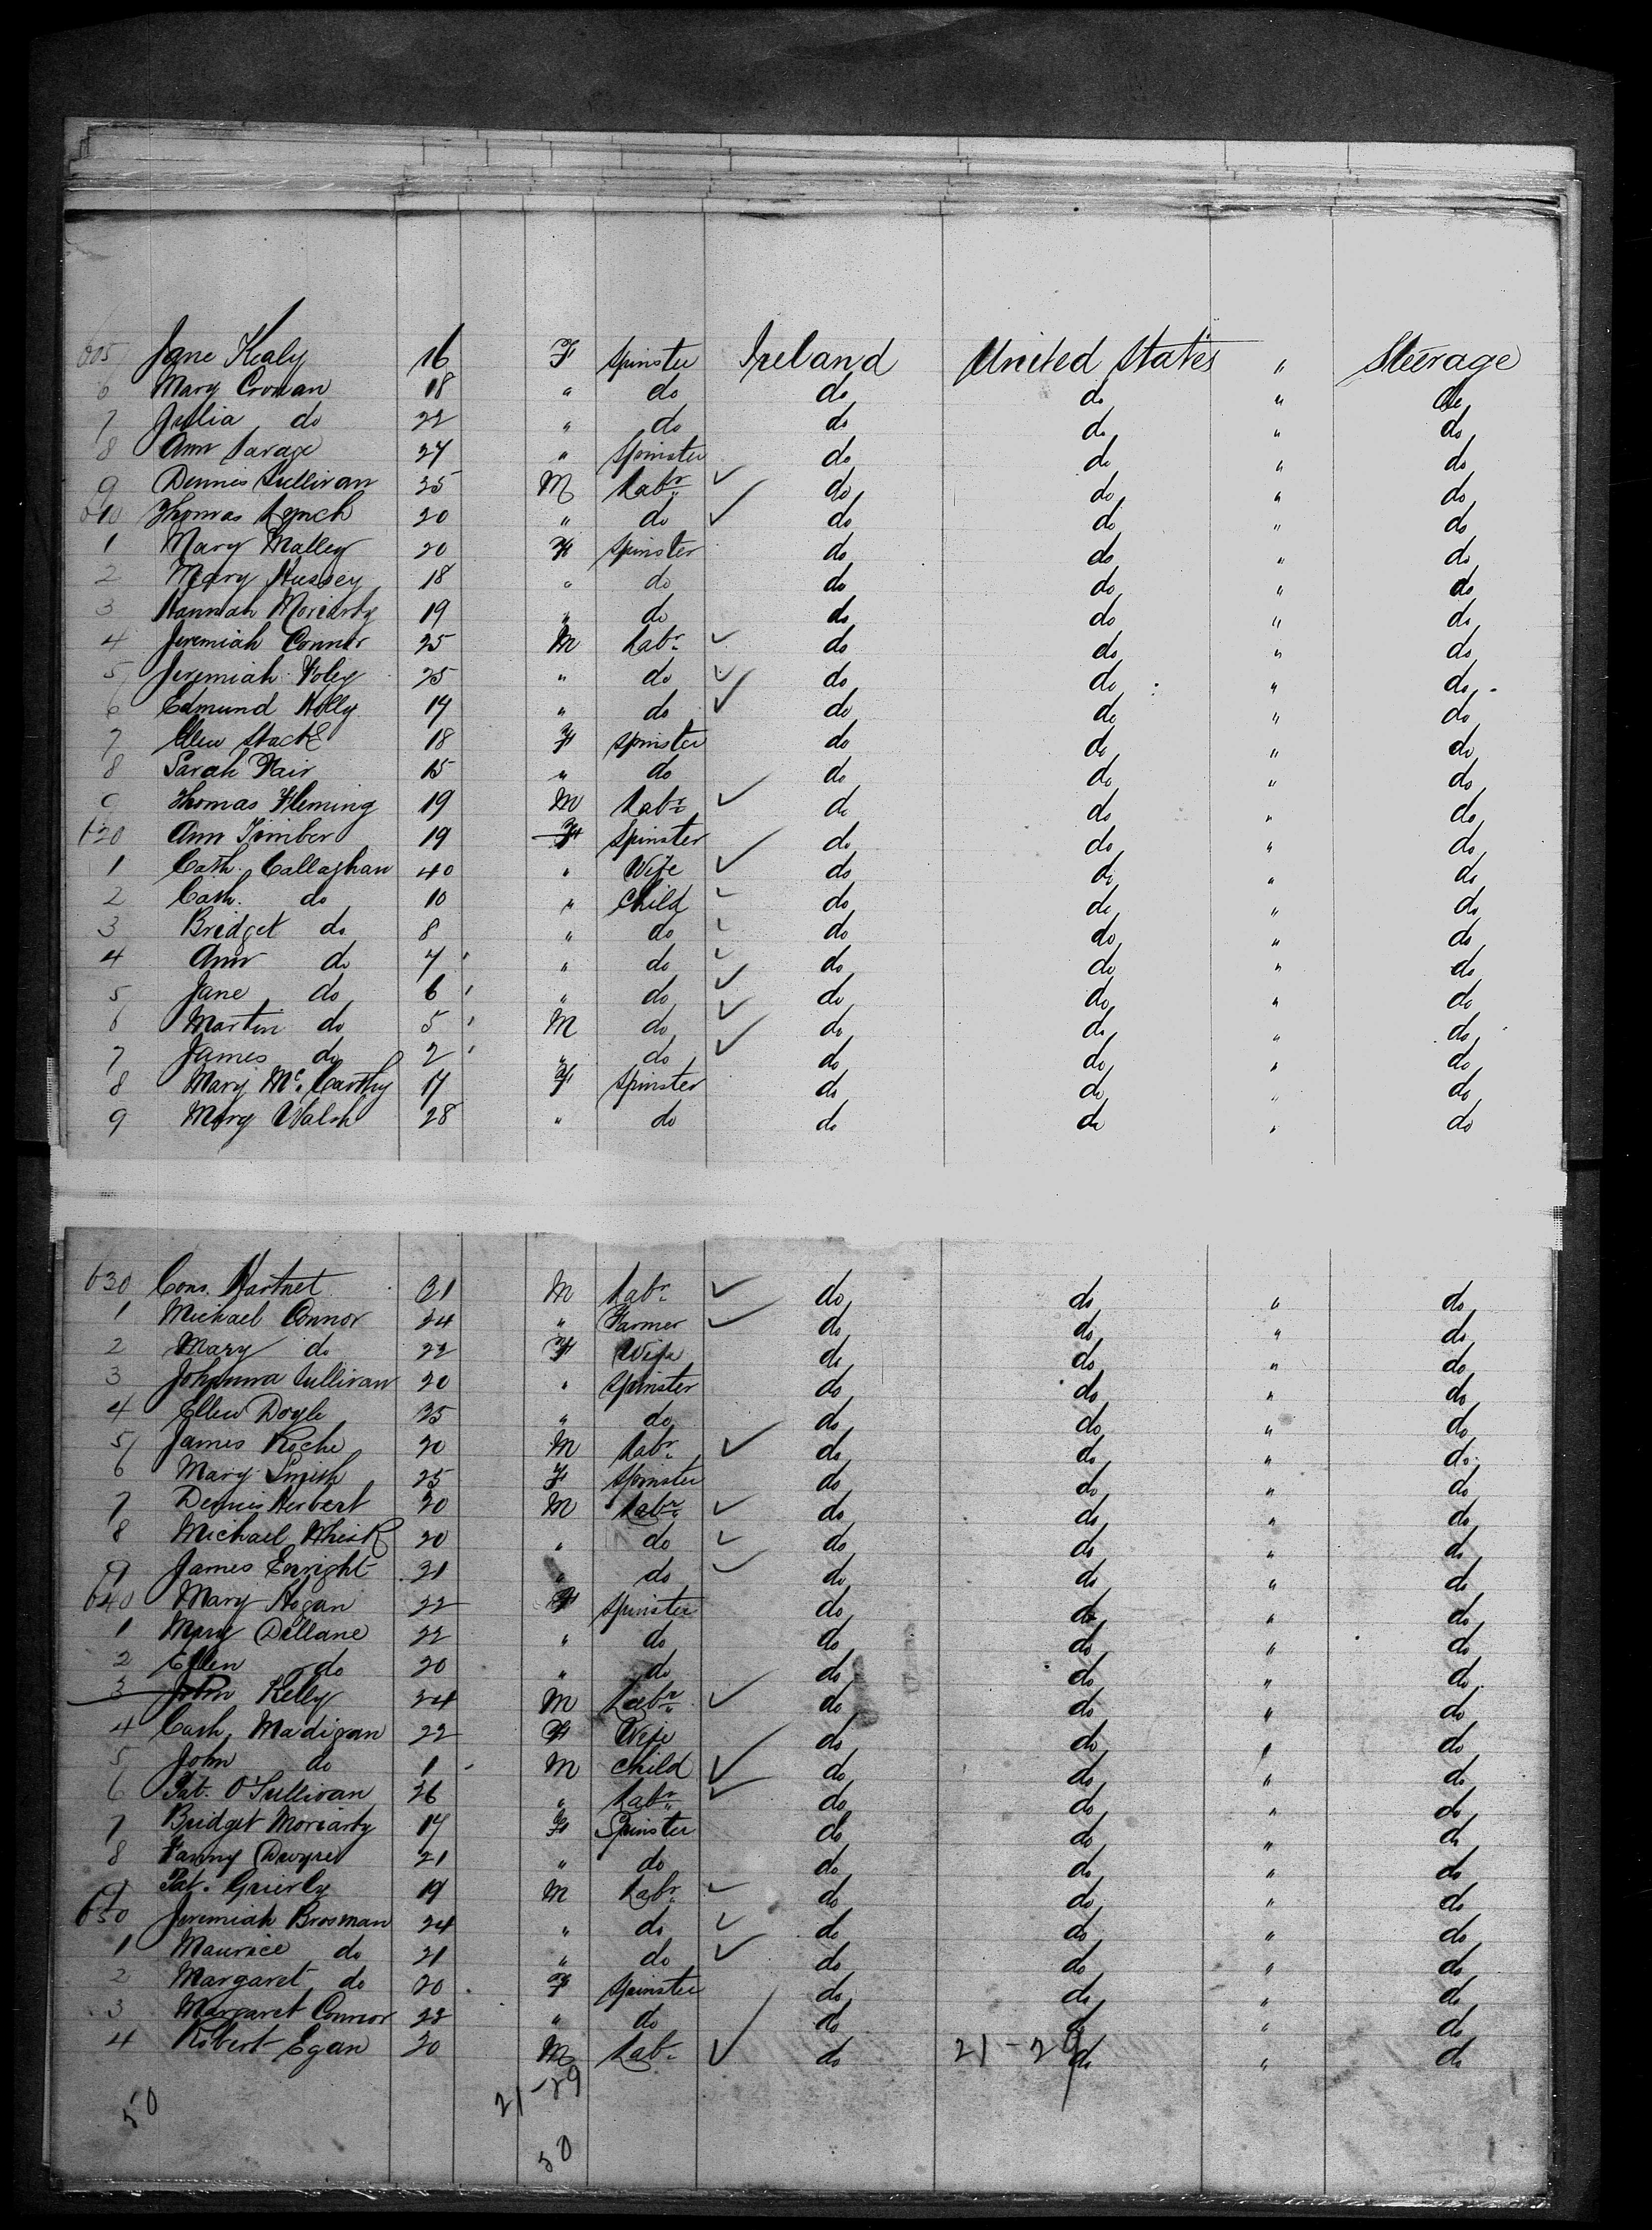 605 Jane Healy 16 F Spinster Ireland United States " Steerage
6 Mary Cronan 18 " do do do " do
7 Julia do 22 " do do do " do
8 Ann Savage 24 " Spinster do do " do
9 Dennis Sullivan 25 M Labr do do " do
610 Thomas Lynch 20 " do do do " do
1 Mary Malley 20 F Spinster do do " do
2 Mary Hussey 18 " do do do " do
3 Hannah Moriarty 19 " do do do " do
4 Jeremiah Connor 25 M Labr do do " do
5 Jeremiah Foley 25 " do do do " do
6 Edmund Holly 19 " do do do " do
7 Ellen Stack 18 F Spinster do do " do
8 Sarah Hair 15 " do do do " do
9 Thomas Fleming 19 M Labr do do " do
620 Ann Timber 19 F Spinster do do " do
1 Cath. Callaghan 40 " Wife do do " do
2 Cath. do 10 " Child do do " do
3 Bridget do 8 " do do do " do
4 Ann do 7 " do do do " do
5 Jane do 6 " do do do " do
6 Martin do 5 M do do do " do
7 James do 2 " do do do " do
8 Mary McCarthy 17 F Spinster do do " do
9 Mary Walsh 28 " do do do " do
630 Cons. Hartnet 21 M Labr do do " do
1 Michael Connor 24 " Farmer do do " do
2 Mary do 22 F Wife do do " do
3 Johanna Sullivan 20 " Spinster do do " do
4 Ellen Doyle 25 " do do do " do
5 James Roche 20 M Labr do do " do
6 Mary Smith 25 F Spinster do do " do
7 Dennis Herbert 20 M Labr do do " do
8 Michael 20 " do do do " do
9 James Enright 21 " do do do " do
640 Mary Hogan 22 F Spinster do do " do
1 Mary Dillane 22 " do do do " do
2 Ellen do 20 " do do do " do
3 John Kelly 24 M Labr do do " do
4 Cath. Madigan 22 F Wife do do " do
5 John do 1 M Child do do " do
6 Pat. O'Sullivan 26 " Labr do do " do
7 Bridget Moriarty 17 F Spinster do do " do
8 Fanny Dwyer 21 " do do do " do
9 Pat. 19 M Labr do do " do
650 Jeremiah Brosman 24 " do do do " do
1 Maurice do 21 " do do do " do
2 Margaret do 20 F Spinster do do " do
3 Margaret Connor 22 " do do do " do
4 Robert Egan 20 M Labr do 21-29 do " do
50 21-29
50